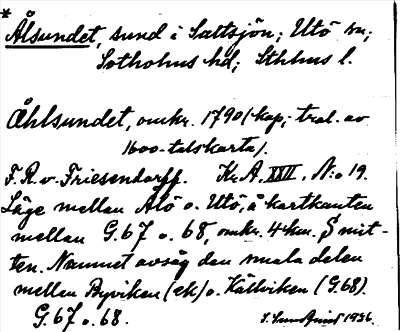 * Ålsundet, sund i Saltsjön; Utö sn;
Sotholms hd; Sthlms l.
Åhlsundet, omkr. 1790 (kop; trol. av
1600-talskarta).
F. R. v. Friesendorff. Kr. A. XXVI, N:o 19.
Läge mellan Ålö o. Utö, å kartkanten
mellan G.67 o. 68, omkr. 4 km. S mit-
ten. Namnet avsåg den smala delen
mellan Byviken (ek) o. Källviken (G.68).
G.67 o. 68.
1936.